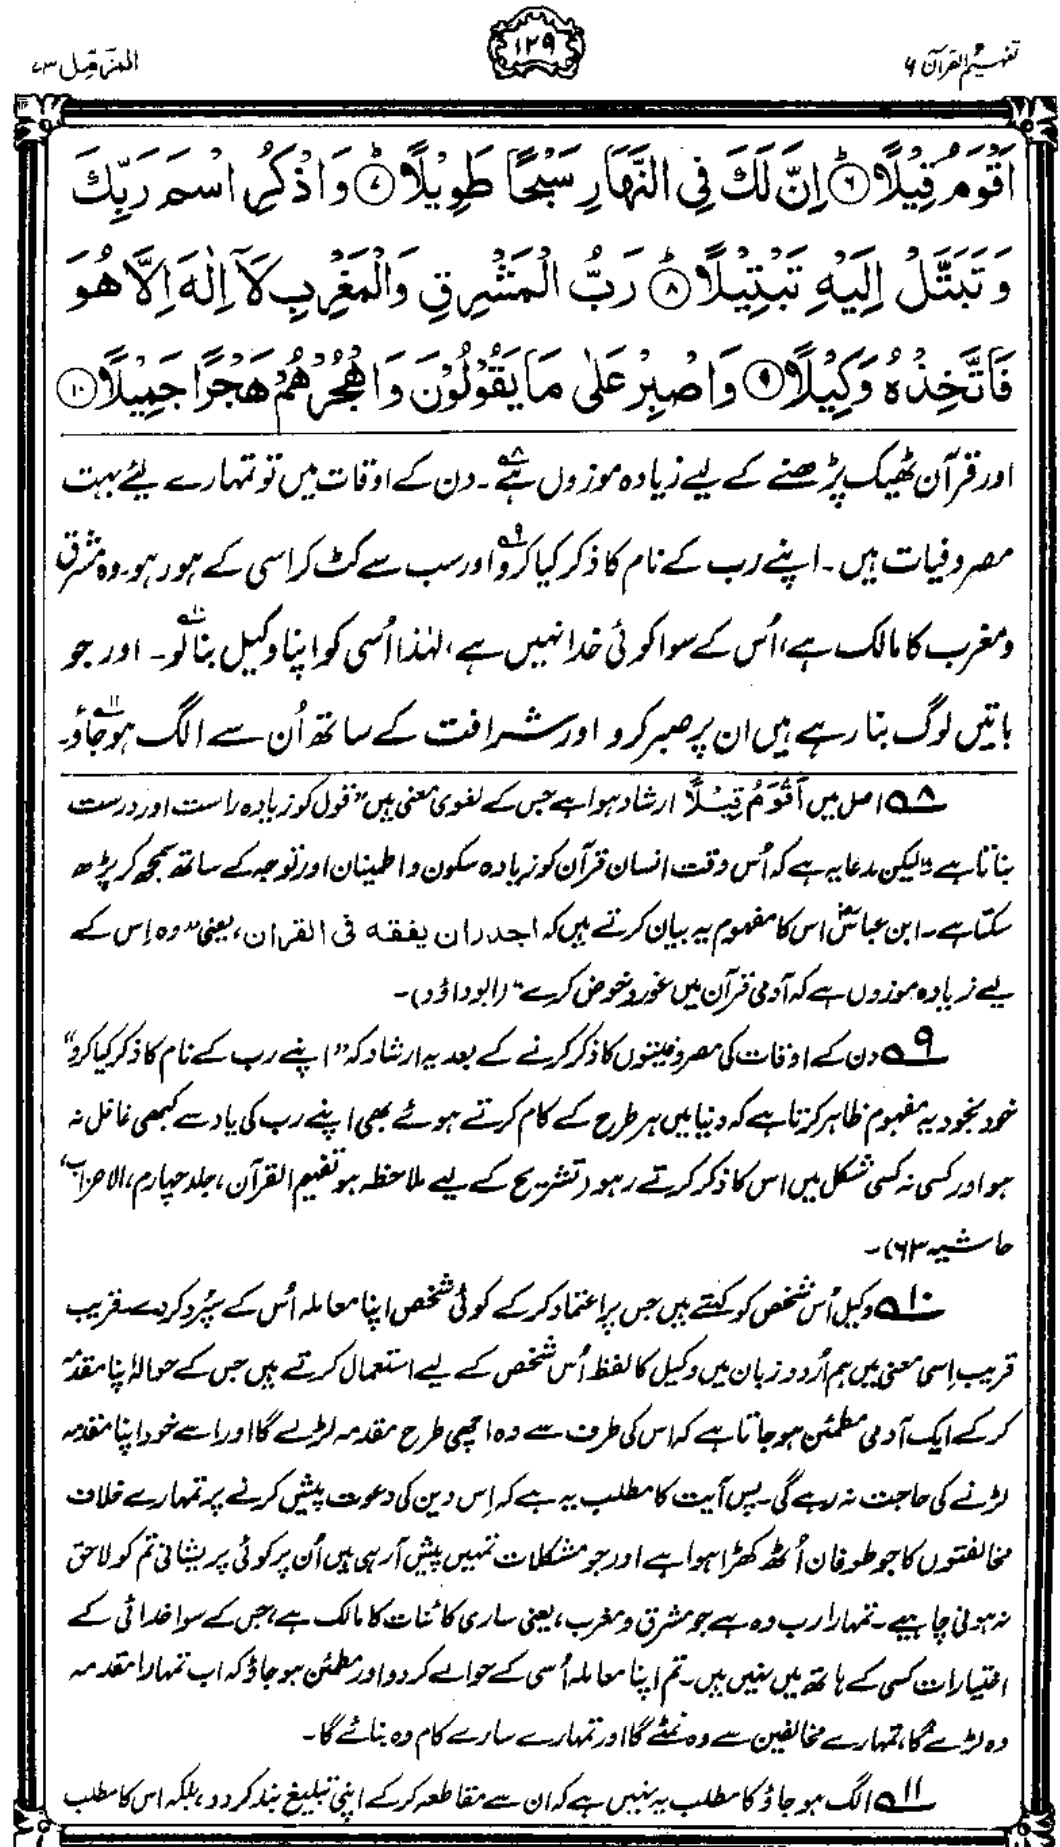 تفہیم القرآن ۶
۱۲۹
المزّمّل ۷۳
اَقْوَمُ قِيْلًا ۶ اِنَّ لَكَ فِى النَّهَارِ سَبْحًا طَوِيْلًا ۷ وَاذْكُرِ اسْمَ رَبِّكَ
وَتَبَتَّلْ اِلَيْهِ تَبْتِيْلًا ۸ رَبُّ الْمَشْرِقِ وَالْمَغْرِبِ لَآ اِلٰهَ اِلَّا هُوَ
فَاتَّخِذْهُ وَكِيْلًا ۹ وَاصْبِرْ عَلٰى مَا يَقُوْلُوْنَ وَاهْجُرْهُمْ هَجْرًا جَمِيْلًا ۱۰
اور قرآن ٹھیک پڑھنے کے لیے زیادہ موزوں ہے۸۔ دن کے اوقات میں تو تمہارے لیئے بہت
مصروفیات ہیں۔ اپنے رب کے نام کا ذکر کیا کرو۹ اور سب سے کٹ کر اسی کے ہو رہو۔ وہ مشرق
و مغرب کا مالک ہے، اُس کے سوا کوئی خدا نہیں ہے، لہٰذا اُسی کو اپنا وکیل بنا لو۱۰۔ اور جو
باتیں لوگ بنا رہے ہیں ان پر صبر کرو اور شرافت کے ساتھ اُن سے الگ ہو جاؤ۱۱۔
۸ اصل میں اَقْوَمُ قِيْلًا ارشاد ہوا ہے جس کے لغوی معنی ہیں ”قول کو زیادہ راست اور درست
بناتا ہے“ لیکن مدعا یہ ہے کہ اُس وقت انسان قرآن کو زیادہ سکون و اطمینان اور توجہ کے ساتھ سمجھ کر پڑھ
سکتا ہے۔ ابن عباسؓ اس کا مفہوم یہ بیان کرتے ہیں کہ اجدر ان یفقه فی القران، یعنی ”وہ اِس کے
لیے زیادہ موزوں ہے کہ آدمی قرآن میں غور و خوض کرے“ (ابوداؤد)۔
۹ دن کے اوقات کی مصروفیتوں کا ذکر کرنے کے بعد یہ ارشاد کہ ”اپنے رب کے نام کا ذکر کیا کرو“
خود بخود یہ مفہوم ظاہر کرتا ہے کہ دنیا میں ہر طرح کے کام کرتے ہوئے بھی اپنے رب کی یاد سے کبھی غافل نہ
ہو اور کسی نہ کسی شکل میں اس کا ذکر کرتے رہو (تشریح کے لیے ملاحظہ ہو تفہیم القرآن، جلد چہارم، الاحزاب،
حاشیہ ۶۳)۔
۱۰ وکیل اُس شخص کو کہتے ہیں جس پر اعتماد کر کے کوئی شخص اپنا معاملہ اُس کے سپُرد کر دے۔ قریب
قریب اِسی معنی میں ہم اُردو زبان میں وکیل کا لفظ اُس شخص کے لیے استعمال کرتے ہیں جس کے حوالہ اپنا مقدمہ
کر کے ایک آدمی مطمئن ہو جاتا ہے کہ اس کی طرف سے وہ اچھی طرح مقدمہ لڑلے گا اور اسے خود اپنا مقدمہ
لڑنے کی حاجت نہ رہے گی۔ پس آیت کا مطلب یہ ہے کہ اِس دین کی دعوت پیش کرنے پر تمہارے خلاف
مخالفتوں کا جو طوفان اُٹھ کھڑا ہوا ہے اور جو مشکلات تمہیں پیش آ رہی ہیں اُن پر کوئی پریشانی تم کو لاحق
نہ ہونی چاہیے۔ تمہارا رب وہ ہے جو مشرق و مغرب، یعنی ساری کائنات کا مالک ہے، جس کے سوا خدائی کے
اختیارات کسی کے ہاتھ میں نہیں ہیں۔ تم اپنا معاملہ اُسی کے حوالے کر دو اور مطمئن ہو جاؤ کہ اب تمہارا مقدمہ
وہ لڑے گا، تمہارے مخالفین سے وہ نمٹے گا اور تمہارے سارے کام وہ بنائے گا۔
۱۱ الگ ہو جاؤ کا مطلب یہ نہیں ہے کہ ان سے مقاطعہ کر کے اپنی تبلیغ بند کر دو، بلکہ اس کا مطلب